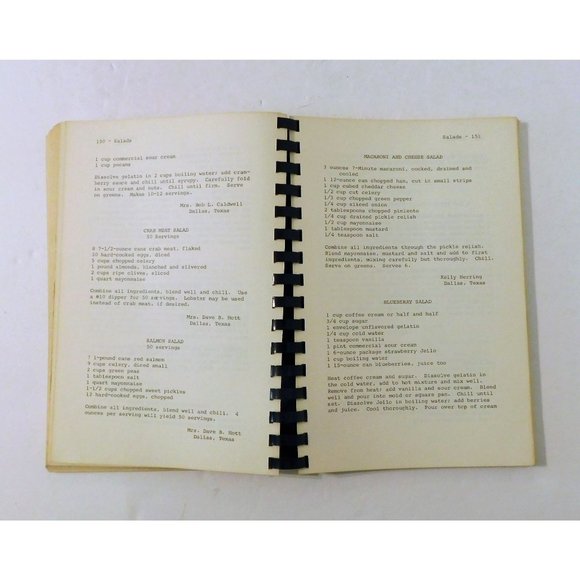 150 - Salads
1 cup commercial sour cream
1 cup pecans
Dissolve gelatin in 2 cups boiling water; add cran-
berry sauce and chill until syrupy. Carefully fold
in sour cream and nuts. Chill until firm. Serve
on greens. Makes 10-12 servings.
Mrs. Bob L. Caldwell
Dallas, Texas
CRAB MEAT SALAD
50 Servings
8 7-1/2-ounce cans crab meat, flaked
10 hard-cooked eggs, diced
5 cups chopped celery
1 pound almonds, blanched and slivered
2 cups ripe olives, sliced
1 quart mayonnaise
Combine all ingredients, blend well and chill. Use
a #10 dipper for 50 servings. Lobster may be used
instead of crab meat, if desired.
Mrs. Dave B. Hott
Dallas, Texas
SALMON SALAD
50 servings
7 1-pound cans red salmon
9 cups celery, diced small
2 cups green peas
1 tablespoon salt
1 quart mayonnaise
1-1/2 cups chopped sweet pickles
12 hard-cooked eggs, chopped
Combine all ingredients, blend well and chill. 4
ounces per serving will yield 50 servings.
Mrs. Dave B. Hott
Dallas, Texas
Salads - 151
MACARONI AND CHEESE SALAD
7 ounces 7-Minute macaroni, cooked, drained and
cooled
1 12-ounce can chopped ham, cut in small strips
1 cup cubed cheddar cheese
1/2 cup cut celery
1/3 cup chopped green pepper
1/4 cup sliced onion
2 tablespoons chopped pimiento
1/4 cup drained pickle relish
1/2 cup mayonnaise
1 tablespoon mustard
1/4 teaspoon salt
Combine all ingredients through the pickle relish.
Blend mayonnaise, mustard and salt and add to first
ingredients, mixing carefully but thoroughly. Chill.
Serve on greens. Serves 6.
Kelly Herring
Dallas, Texas
BLUEBERRY SALAD
1 cup coffee cream or half and half
3/4 cup sugar
1 envelope unflavored gelatin
1/4 cup cold water
1 teaspoon vanilla
1 pint commercial sour cream
1 6-ounce package strawberry Jello
1 cup boiling water
1 15-ounce can blueberries, juice too
Heat coffee cream and sugar. Dissolve gelatin in
the cold water, add to hot mixture and mix well.
Remove from heat; add vanilla and sour cream. Blend
well and pour into mold or square pan. Chill until
set. Dissolve Jello in boiling water; add berries
and juice. Cool thoroughly. Pour over top of cream